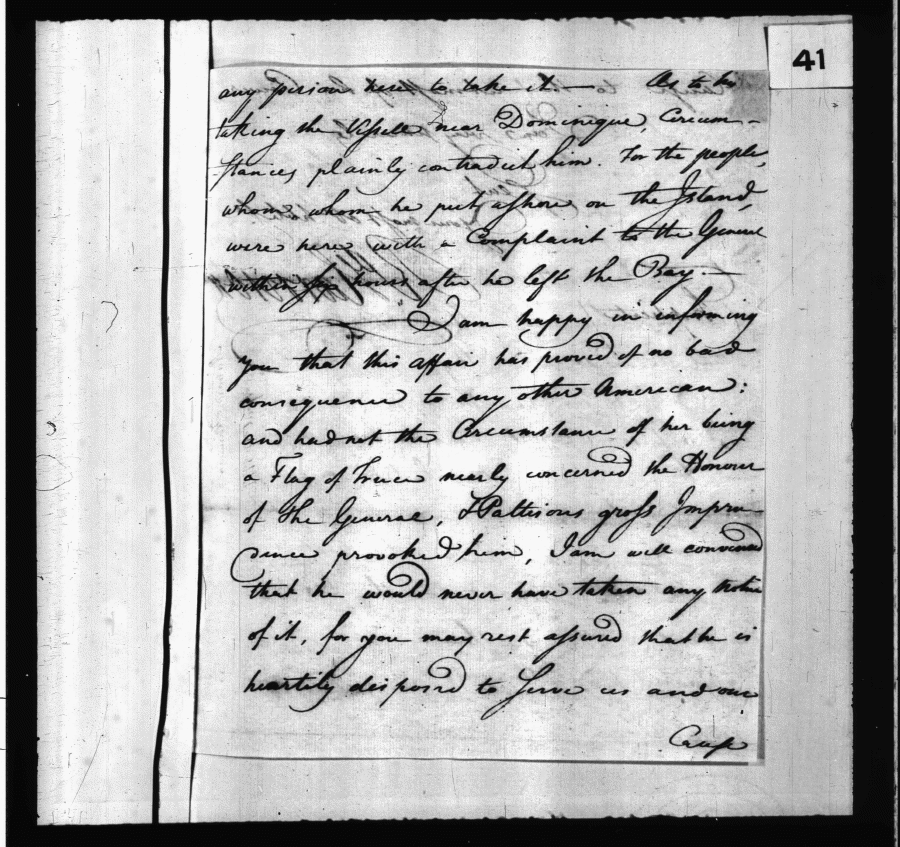 41
any person here to take it. — As to his
taking the Vessell near Dominique, Circum-
stances plainly contradict him. For the people,
whom whom he put ashore on the Island,
were here with a Complaint to the General
within six hours after he left the Bay. —
I am happy in informing
you that this affair has proved of no bad
consequence to any other American:
and had not the Circumstance of her being
a Flag of Truce nearly concerned the Honour
of the General, & Pattisons gross Impru-
dence provoked him, I am well convinced
that he would never have taken any Notice
of it, for you may rest assured that he is
heartily disposed to serve us and our
Cause